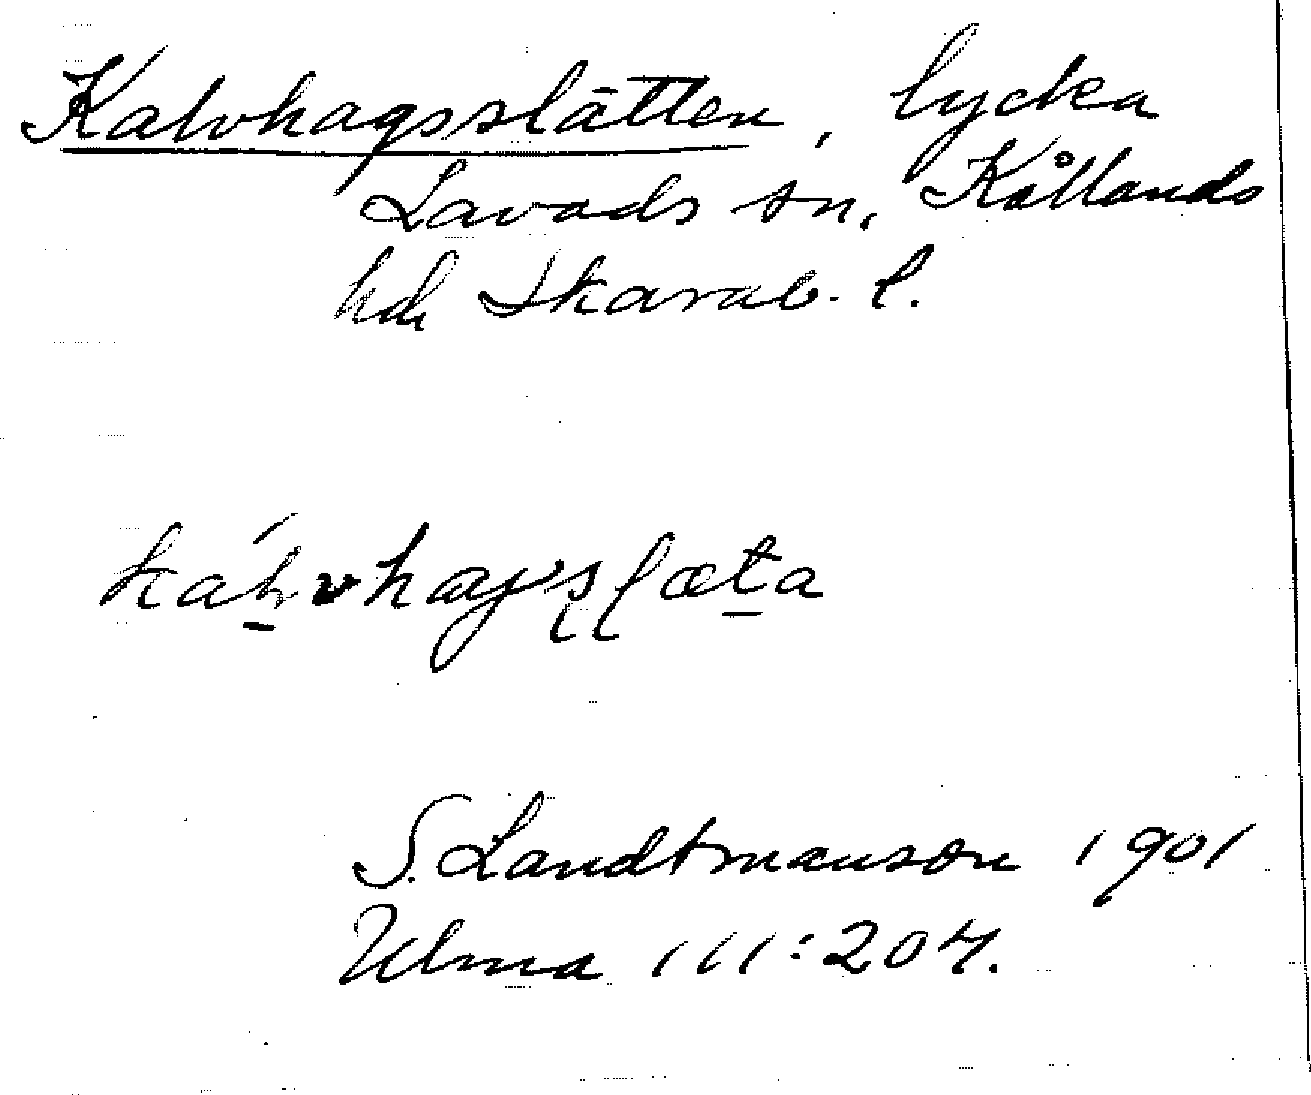 Kalvhagsslätten, lycka
Lavads sn, Kållands
hd, Skarab. l.
kálvhagsslæta
S. Landtmanson 1901
Ulma 111:204.